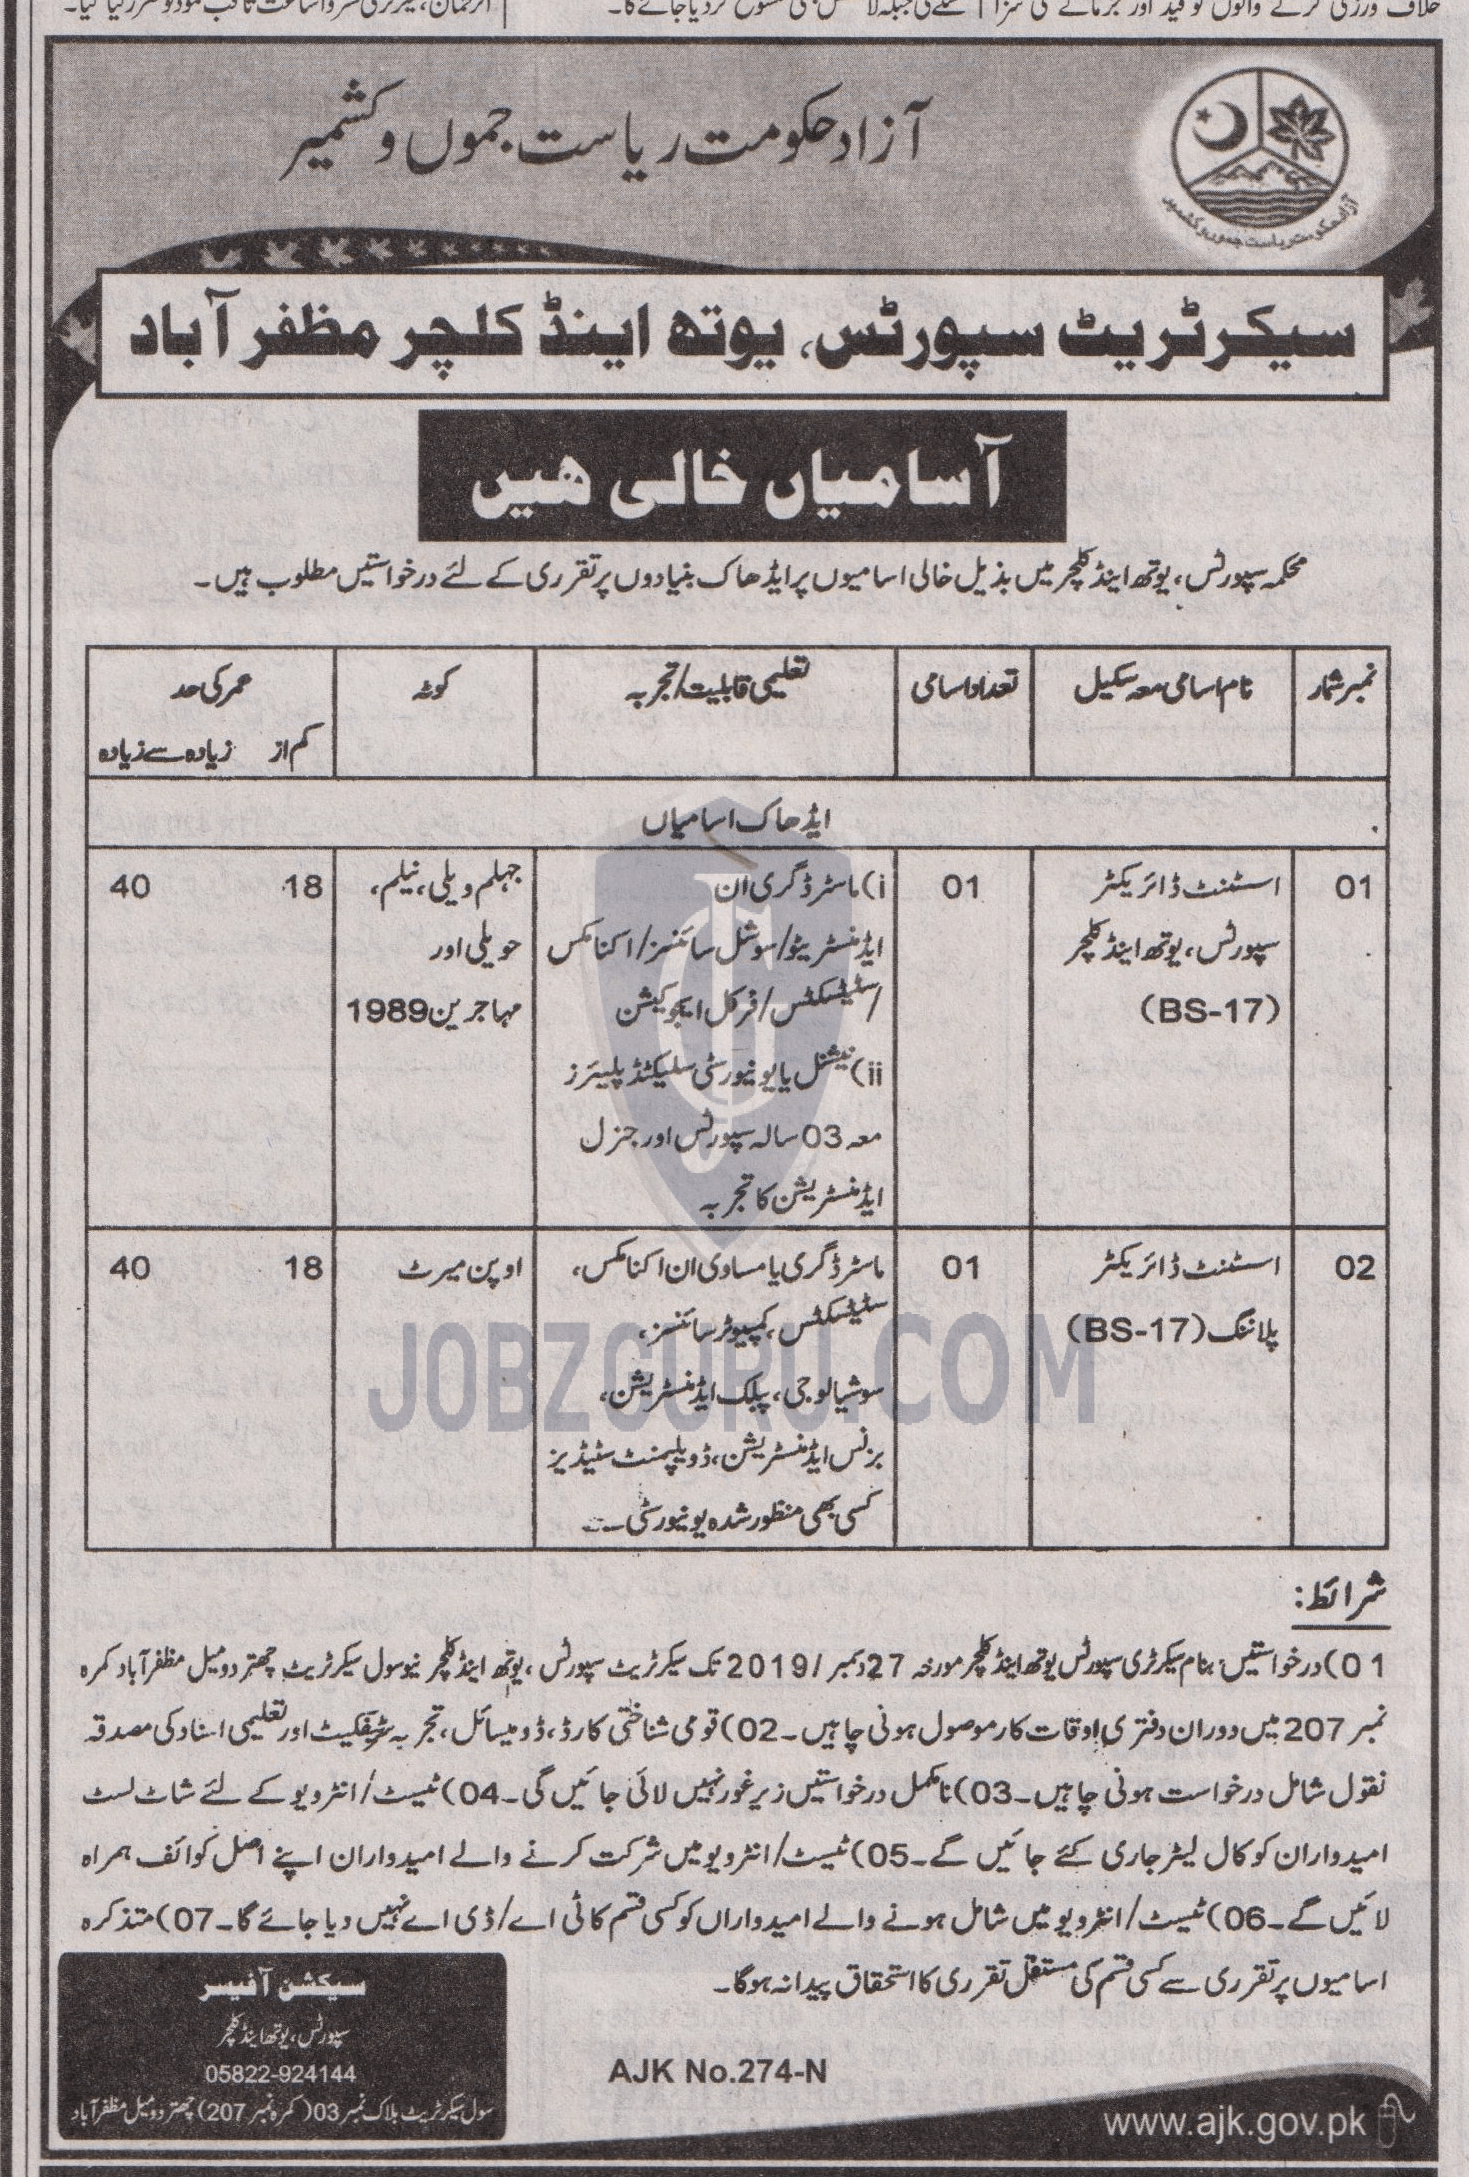 آزاد حکومت ریاست جموں و کشمیر
آزاد حکومت ریاست جموں و کشمیر
سیکرٹریٹ سپورٹس، یوتھ اینڈ کلچر مظفر آباد
آسامیاں خالی ھیں
محکمہ سپورٹس، یوتھ اینڈ کلچر میں بذیل خالی اسامیوں پر ایڈھاک بنیادوں پر تقرری کے لئے درخواستیں مطلوب ہیں۔
نمبر شمار نام اسامی معہ سکیل تعداد اسامی تعلیمی قابلیت/تجربہ کوٹہ عمر کی حد
کم از زیادہ سے زیادہ
ایڈھاک اسامیاں
01 اسسٹنٹ ڈائریکٹر 01 i) ماسٹر ڈگری ان جہلم ویلی، نیلم، 18 40
سپورٹس، یوتھ اینڈ کلچر ایڈمنسٹریٹو/سوشل سائنسز/اکنامکس حویلی اور
(BS-17) /سٹیٹسکٹس/فزکل ایجوکیشن مہاجرین 1989
ii) نیشنل یا یونیورسٹی سلیکٹڈ پلیئرز
معہ 03 سالہ سپورٹس اور جنرل
ایڈمنسٹریشن کا تجربہ
02 اسسٹنٹ ڈائریکٹر 01 ماسٹر ڈگری یا مساوی ان اکنامکس، اوپن میرٹ 18 40
پلاننگ (BS-17) سٹیٹسکٹس، کمپیوٹر سائنسز،
سوشیالوجی، پبلک ایڈمنسٹریشن،
بزنس ایڈمنسٹریشن، ڈویلپمنٹ سٹیڈیز
کسی بھی منظور شدہ یونیورسٹی سے۔
JOBZGURU.COM
شرائط:
01) درخواستیں بنام سیکرٹری سپورٹس یوتھ اینڈ کلچر مورخہ 27 دسمبر/2019 تک سیکرٹریٹ سپورٹس، یوتھ اینڈ کلچر نیو سول سیکرٹریٹ چھتر دومیل مظفر آباد کمرہ
نمبر 207 میں دوران دفتری اوقات کار موصول ہونی چاہیں۔ 02) قومی شناختی کارڈ، ڈومیسائل، تجربہ سرٹیفکیٹ اور تعلیمی اسناد کی مصدقہ
نقول شامل درخواست ہونی چاہیں۔ 03) نامکمل درخواستیں زیر غور نہیں لائی جائیں گی۔ 04) ٹیسٹ/انٹرویو کے لئے شاٹ لسٹ
امیدواران کو کال لیٹر جاری کئے جائیں گے۔ 05) ٹیسٹ/انٹرویو میں شرکت کرنے والے امیدواران اپنے اصل کوائف ہمراہ
لائیں گے۔ 06) ٹیسٹ/انٹرویو میں شامل ہونے والے امیدواراں کو کسی قسم کا ٹی اے/ڈی اے نہیں دیا جائے گا۔ 07) متذکرہ
اسامیوں پر تقرری سے کسی قسم کی مستقل تقرری کا استحقاق پیدا نہ ہوگا۔
سیکشن آفیسر
سپورٹس، یوتھ اینڈ کلچر
05822-924144
سول سیکرٹریٹ بلاک نمبر 03 (کمرہ نمبر 207) چھتر دومیل مظفر آباد
AJK No.274-N
www.ajk.gov.pk